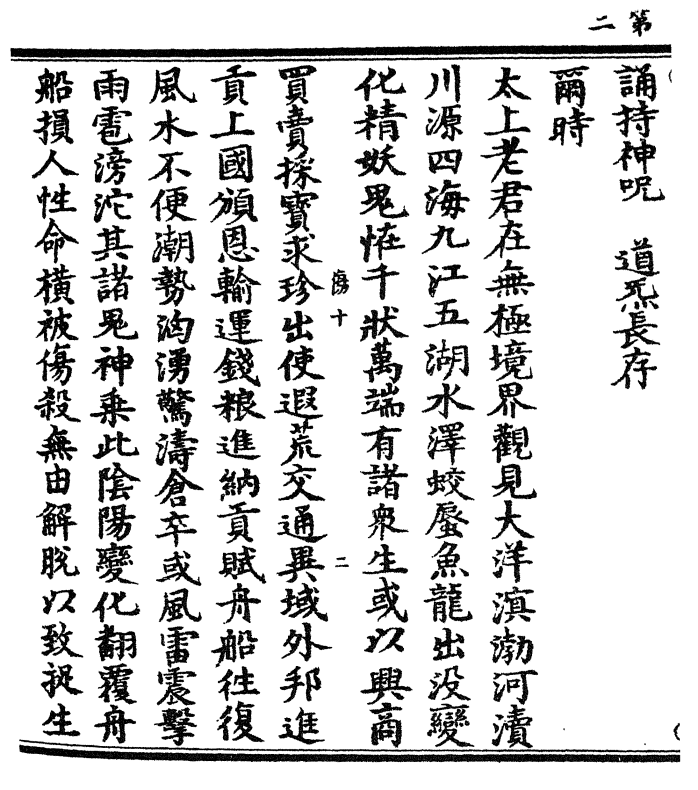 第二
誦持神呪　道炁長存
爾時
太上老君在無極境界觀見大洋溟渤河瀆
川源四海九江五湖水澤蛟蜃魚龍出没變
化精妖鬼恠千狀萬端有諸衆生或以興商
買賣採寶求珍出使遐荒交通異域外邦進
傍十
二
貢上國頒恩輸運錢粮進納貢賦舟船徃復
風水不便潮勢洶湧驚濤倉卒或風雷震擊
雨雹滂沱其諸鬼神乗此陰陽變化翻覆舟
船損人性命橫被傷殺無由解脫以致捉生